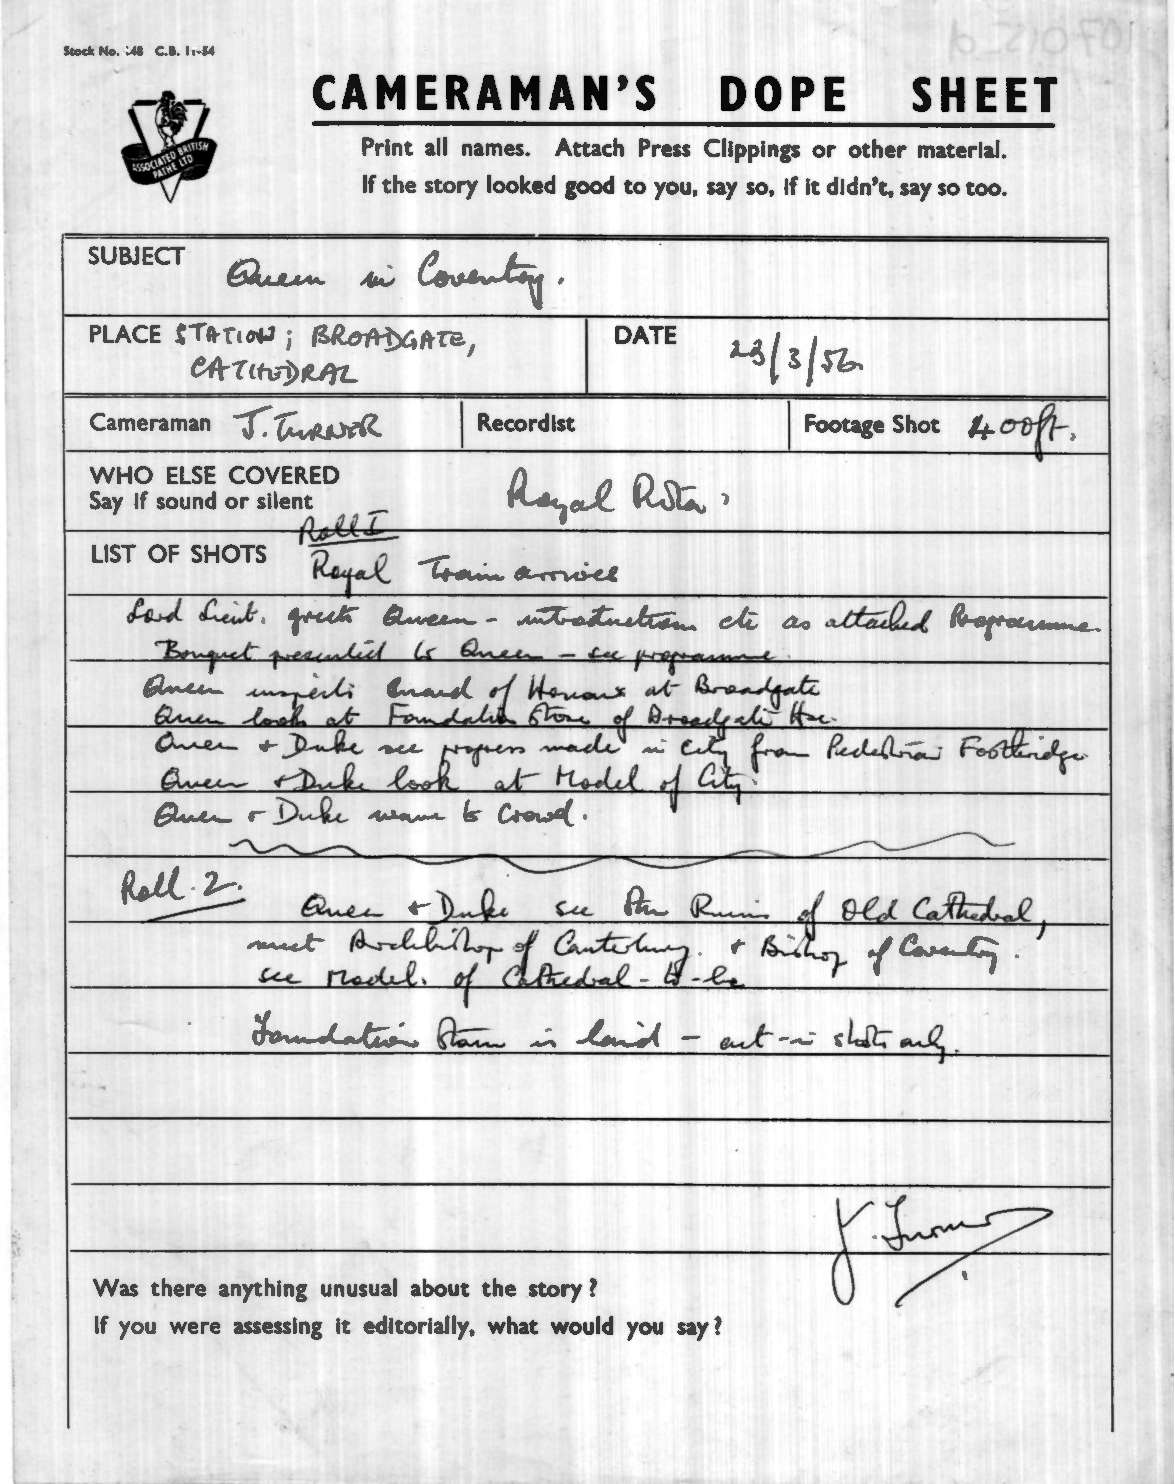 Stock No. 348 C.B. 11-54
CAMERAMAN'S DOPE SHEET
ASSOCIATED BRITISH
PATHE LTD
Print all names. Attach Press Clippings or other material.
If the story looked good to you, say so, if it didn't, say so too.
SUBJECT Queen in Coventry.
PLACE STATION; BROADGATE,
CATHEDRAL
DATE 23/3/56
Cameraman J. TURNER
Recordist
Footage Shot 400ft.
WHO ELSE COVERED
Say if sound or silent
Royal Rota.
Roll I
LIST OF SHOTS Royal Train arrives
Lord Lieut. greets Queen - introductions etc as attached Programme.
Bouquet presented to Queen - see programme.
Queen inspects Guard of Honour at Broadgate
Queen looks at Foundation Stone of Broadgate Hse.
Queen + Duke see progress made in city from Pedestrian Footbridge
Queen + Duke look at Model of City.
Queen + Duke wave to Crowd.
Roll. 2.
Queen + Duke see the Ruins of Old Cathedral,
meet Archbishop of Canterbury. + Bishop of Coventry.
see Model. of Cathedral-to-be
Foundation Stone is laid - cut-in shots only.
J. Turner
Was there anything unusual about the story?
If you were assessing it editorially, what would you say?